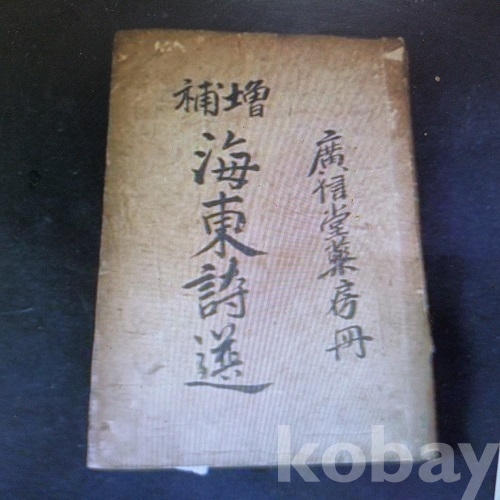 廣信堂藥房冊
增補
海東詩選
kobay